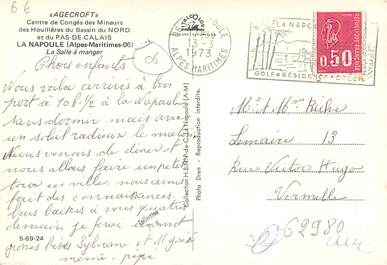 6€
«AGECROFT»
Centre de Congés des Mineurs
des Houillères du Bassin du NORD
et du PAS-DE-CALAIS
LA NAPOULE (Alpes-Maritimes-06)
La Salle à manger
06
1973
ALPES MARITIMES
LA NAPOULE
GOLF RÉSIDE
0,50
Chers enfants
Nous voila arrivés à bon
port à 10h 1/2 à la Napoule
sans dormir mais avec
un soleil radieux le matin
Nous venons de diner et nous
nous allons faire un petit
tour en ville, nous avons
fait des connaissances,
Gros baises à vous quatre
demain je ferai
grosses bises Sylvain et
mémé - pépé
5-69-24
Collection H.B.N.P.C. La Napoule (A.M)
Photo Dren - Reproduction interdite.
Mr et Mme
Lemaire 13
Rue Victor Hugo
Vermelle
62980